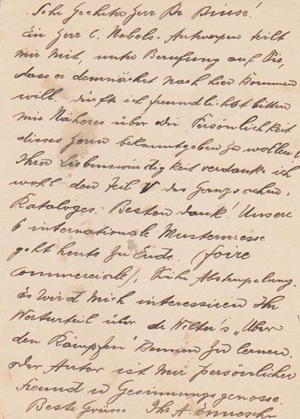 Sehr Geehrter Herr Dr Binse!
Ein Herr C. Nobels-Antwerpen teilt
mir mit, unter Berufung auf Sie,
dass er demnächst nach hier kommen
will. Dürft ich freundlichst bitten
mir Näheres über die Persönlichkeit
dieses Herrn bekanntgeben zu wollen!
Ihrer Liebenswürdigkeit verdank ich
wohl den Teil V des
Kataloges. Besten Dank! Unsere
6 internationale Mustermesse
geht heute zu Ende. (foire
commerciale), siehe Abstempelung.
Es wird mich interessieren Ihr
Werturteil über de Wolter's „Über
den Kämpfen" kennen zu lernen.
Der Autor ist mir persönlicher
Freund u Gesinnungsgenosse.
Beste Grüsse Ihr A.